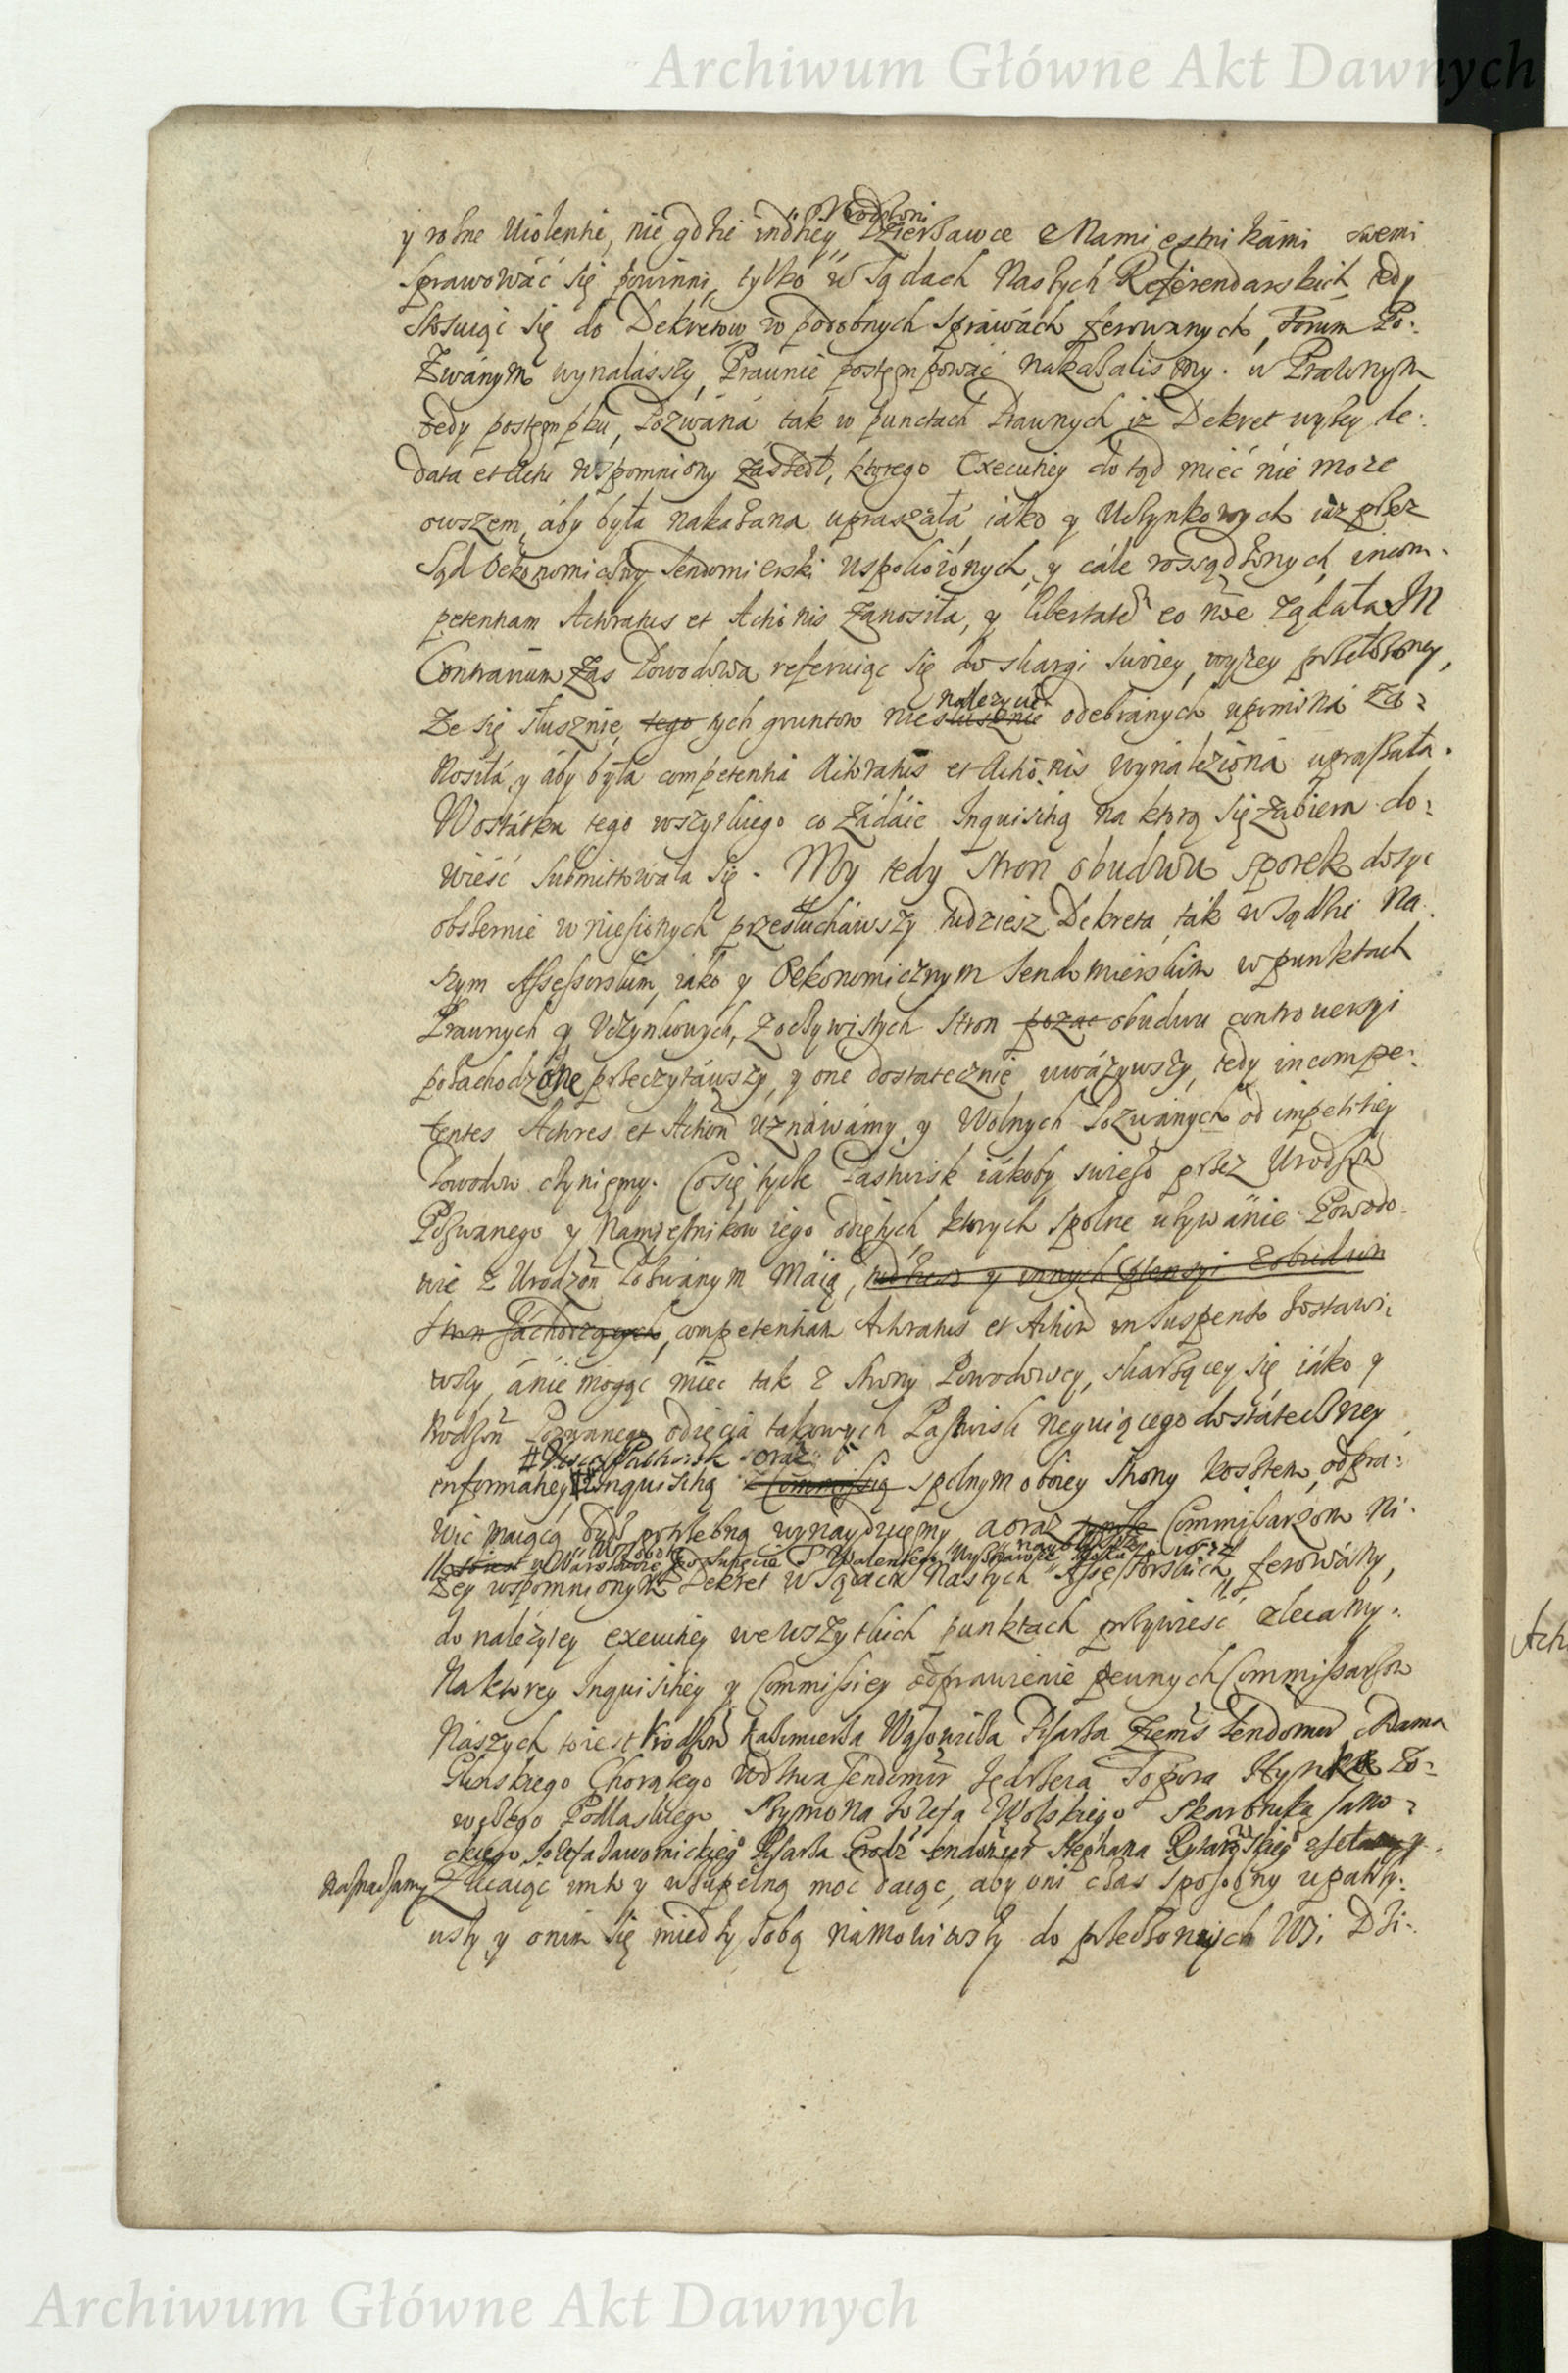 Archiwum Główne Akt Dawnych
Urodzoni
y rożne Uiolentie, nie gdzie indziey, Dzierżawce Namiestnikami swemi
sprawować się powinni, tylko w Sądach Naszych Referendarskich, tedy
stosuiąc się do Dekretow w podobnych sprawach ferowanych, Forum Po:
zwanym wynalasszy, Prawnie postempować nakazalismy. w Prawnym
tedy postempku, Pozwana tak w punctach Prawnych iż Dekret wyżey de
data et Actu wspomniony zaszedł, ktorego Executiey dotąd mieć nie może
owszem, aby była nakazana upraszała, iako y Uczynkowych iuz przez
Sąd Oekonomiczny Sendomierski uspokoionych, y cale rossądzonych, incom-
petentiam Actoratus et Actionis zanosiła, y libertatem eo nõe żądała. In
Contrarium zas Powodowa referuiąc się do skargi swoiey, wyżey przełożoney,
należycie
Że się słusznie, tego tych gruntow niesłusznie odebranych upomina za:
nosiła, y aby była competentia Actoratus et Actionis wynaleziona upraszała.
W ostatku tego wszytkiego co zadaie Inquisitią na ktorą się zabiera do:
wieść submittowała się. My tedy stron obudwu sporek dosyc
obszernie wniesionych przesłuchawszy tudziesz Dekreta, tak w Sądzie Na:
szym Assessorskim, iako y Oekonomicznym Sendomierskim w punktach
Prawnych y Uczynkowych, z oczywistych stron pozac obudwu controuersyi
pozachodzone przeczytawszy, y one dostatecznie uważywszy, tedy incompe:
tentes Actores et Action uznawamy, y Wolnych Pozwanych od impetitiey
Powodow czyniemy. Co się tycze Pastwisk iakoby swiezo przez Urodzon
Pozwanego y Namiestnikow iego odiętych, ktorych spolne używanie Powodo-
wie z Urodzon Pozwanym maią, tudziesz y innych obudwu
stron zachodzących, competentiam Actoratus et Action in suspenso zostawi:
wszy, a nie mogąc miec tak z strony Powodowey, skarżącey się iako y
Urodzon Pozwanego odięcia takowych Pastwisk neguiącego dostateczney
Pastwisk oraz
informatiey Inquisitią z Commissią spolnym oboiey strony kosztem, odpra:
wić maiącą bydź potrzebną wynayduiemy, a oraz tymże Commissarzom Ni-
w Warszawie
żey wspomnionym Dekret w Sądach Naszych Assessorskich ferowany,
do należytey executiey we wszytkich punktach przywiesć zlecamy.
Na ktorey Inquisitiey y Commissiey odprawienie pewnych Commissarzow
Naszych to iest Urodzon Kazimierza Wąsowicza Pisarza Ziems Sendomir Adama
Chorążego Wdztwa Sendomir Jędrzeia Topora Hynka Ło-
wczego Podlaskiego Szymona Jozefa Wolskiego Skarbnika Sano:
ckiego Jozefa Jawornickiego Pisarza Grodz Sendomir Stephana
naznaczamy Zlecaiąc im to y wszupełną moc daiąc, aby oni czas sposobny upatrzy:
wszy y onim się między sobą namowiwszy do przeczonych Wsi Dzi:
Archiwum Główne Akt Dawnych